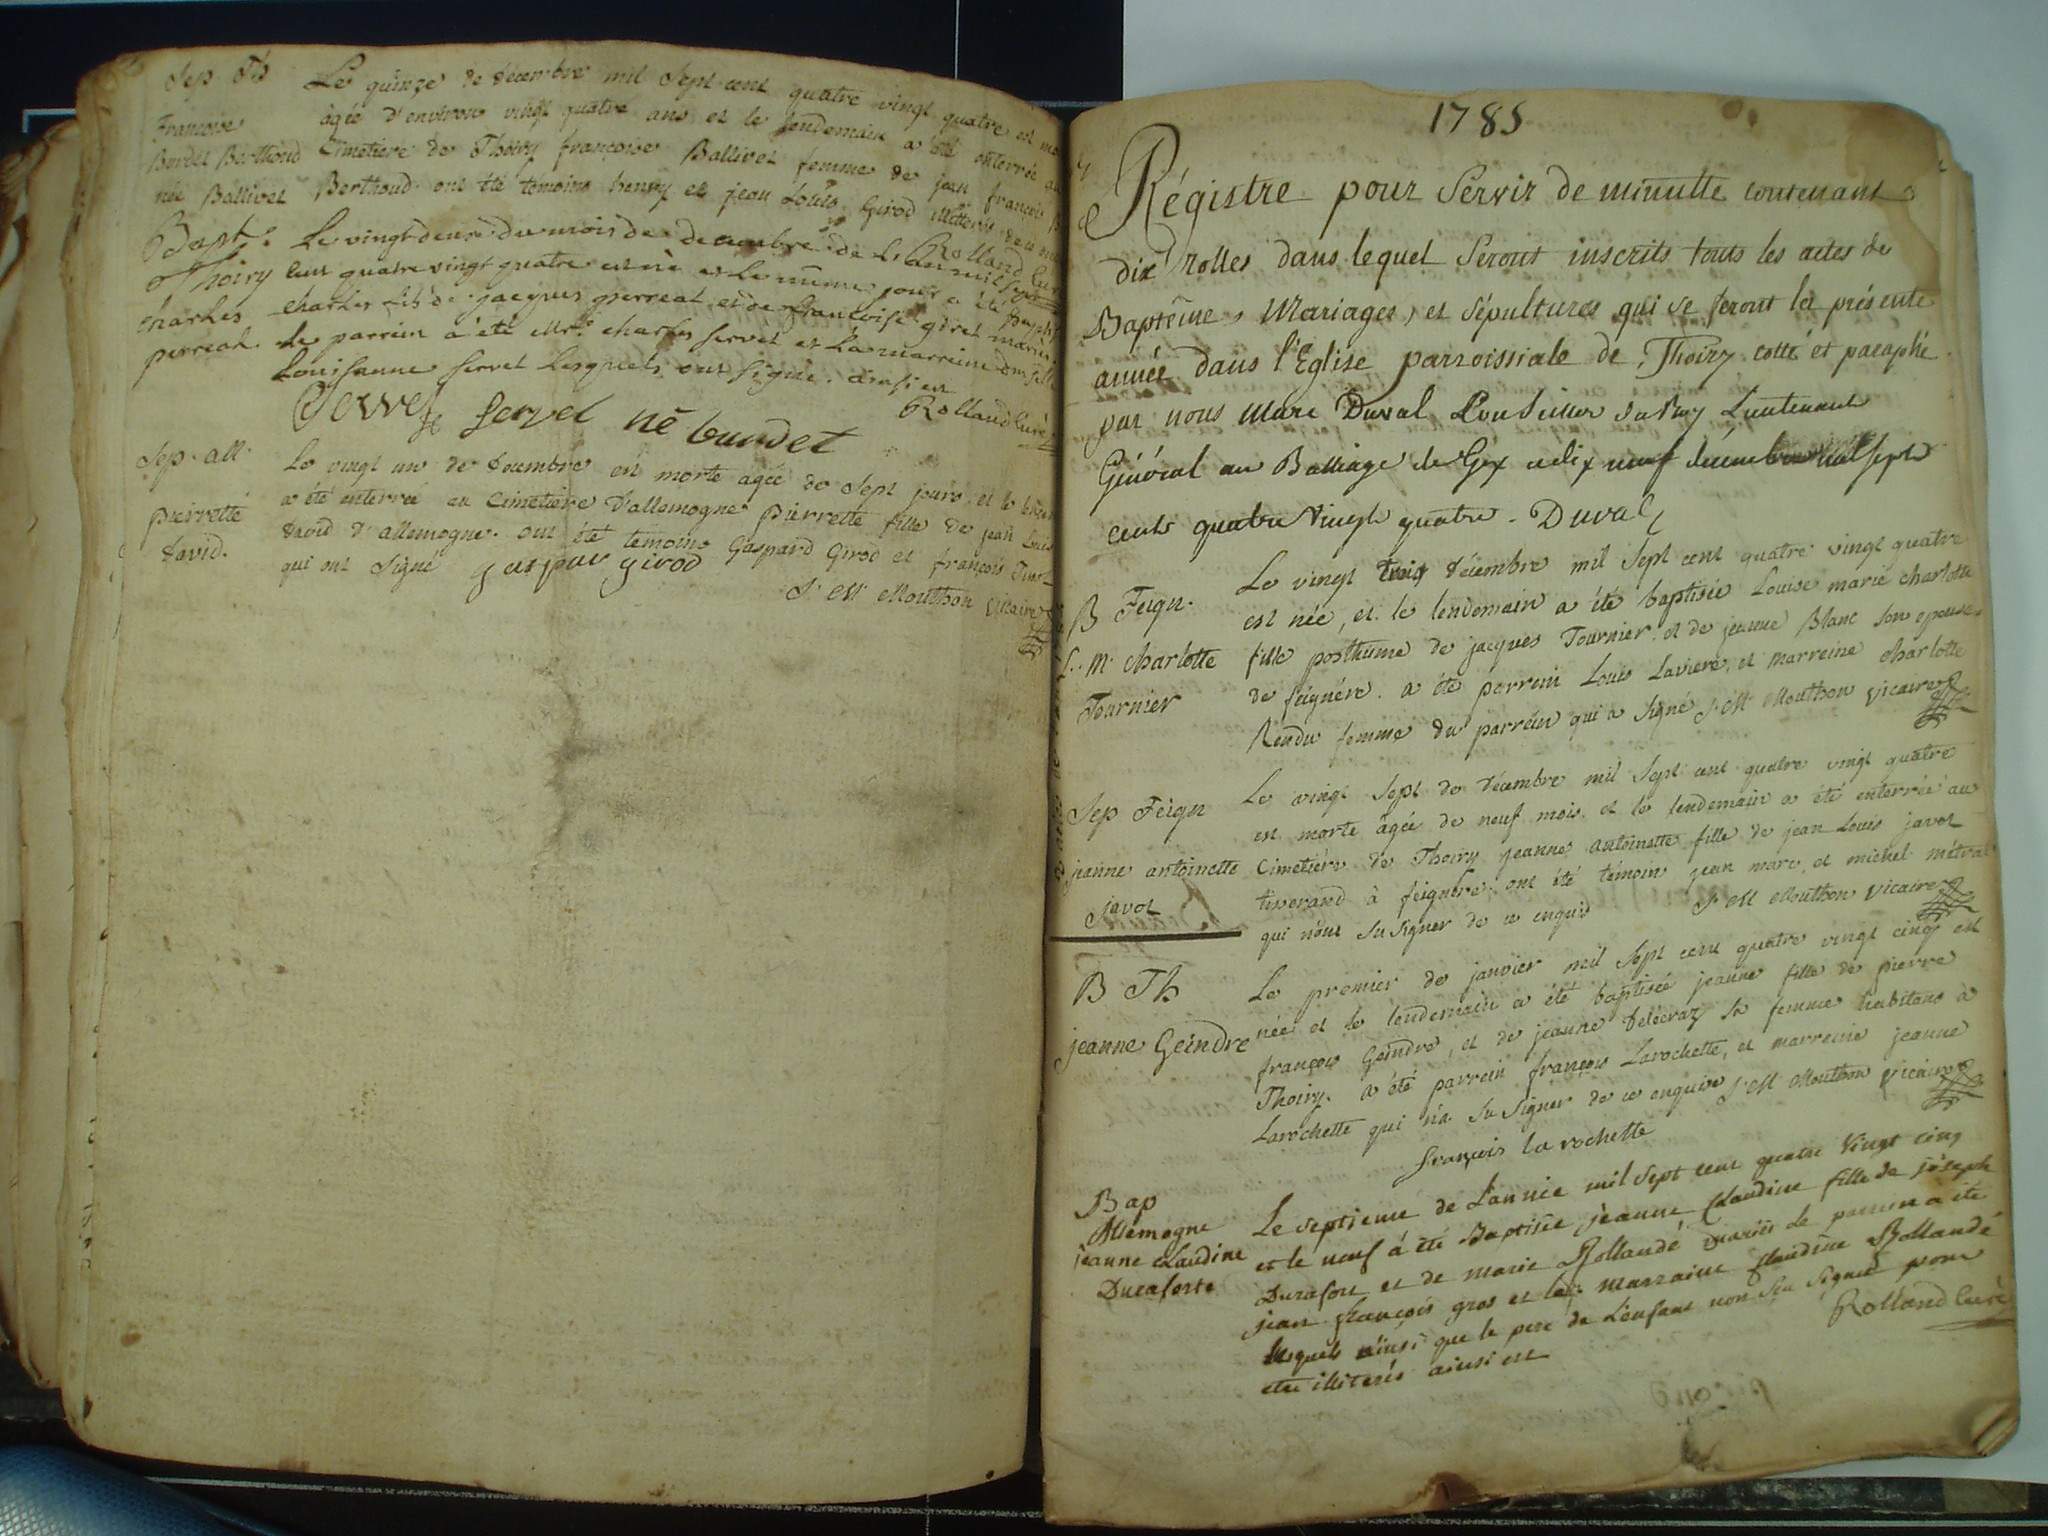 Sep Th
Françoise
Bordet Berthoud
née Ballivet
Le quinze de décembre mil sept cent quatre vingt quatre est
âgée d'environ vingt quatre ans et le lendemain a été enterrée au
Cimetière de Thoiry françoise Ballivet femme de jean françois
Berthoud. ont été temoins henry et jean Louis Girod
Rolland Curé
Bapt.
Thoiry
charles
perreal
Le vingt deux du mois de decembre de L'an mil sept
cent quatre vingt quatre est né et Le même jour a été baptisé
charles fils de jacques perreal et de francoise giret mariés
le parrein a été Mr. charles servet et La marreine
Louisanne servet Lesquels ont signé. ainsi est
Rolland Curé
Servet servet né bundet
Sep. all.
pierrette
david.
Le vingt un de decembre est morte agée de sept jours et le
a été enterrée au Cimetière d'allemogne pierrette fille de jean Louis
david d'allemogne. ont été temoins Gaspard Girod et françois
qui ont signé gaspar girod
J. M. Mouthon vicaire
1785
Régistre pour Servir de minutte contenant
dix Rolles dans lequel Seront inscrits touts les actes de
Baptême, Mariages, et sépultures qui se feront la présente
année dans l'Eglise parroissiale de Thoiry cotté et paraphé
par nous Marc Duval Conseiller du Roy Lieutenant
Général au Balliage de Gex ce dix neuf décembre mil sept
cents quatre Vingt quatre. Duval
B Feign.
L. M. charlotte
Tournier
Le vingt trois décembre mil sept cent quatre vingt quatre
est née, et le lendemain a été baptisée Louise marie charlotte
fille posthume de jacques Tournier et de jeanne Blanc son epouse
de feignére. a été parrein Louis Laviere, et marreine charlotte
Rendu femme du parrein qui a signé J. M. Mouthon vicaire
Sep Feign
jeanne antoinette
javot
Le vingt sept de décembre mil sept cent quatre vingt quatre
est morte âgée de neuf mois et le lendemain a été enterrée au
Cimetière de Thoiry jeanne antoinette fille de jean Louis javot
tisserand à feignére. ont été témoin jean marc et michel métral
qui n'ont su signer de ce enquis J. M. Mouthon vicaire
B Th
jeanne Geindre
Le premier de janvier mil sept cent quatre vingt cinq est
née et le lendemain a été baptisée jeanne fille de pierre
françois Geindre, et de jeanne delécraz sa femme habitans à
Thoiry. a été parrein françois Larochette, et marreine jeanne
Larochette qui n'a su signer de ce enquise J. M. Mouthon vicaire
françois la rochette
Bap
Allemogne
jeanne claudine
Duraforte
Le septieme de L'année mil sept cent quatre Vingt cinq
et le neuf à été Baptisée jeanne Claudine fille de joseph
Durafort et de marie Rollandé mariés le parrein a été
jean françois gros et la marraine claudine Rollandé
lesquels ainsi que le pere de L'enfant non su signer pour
etre illiterés ainsi est
Rolland Curé